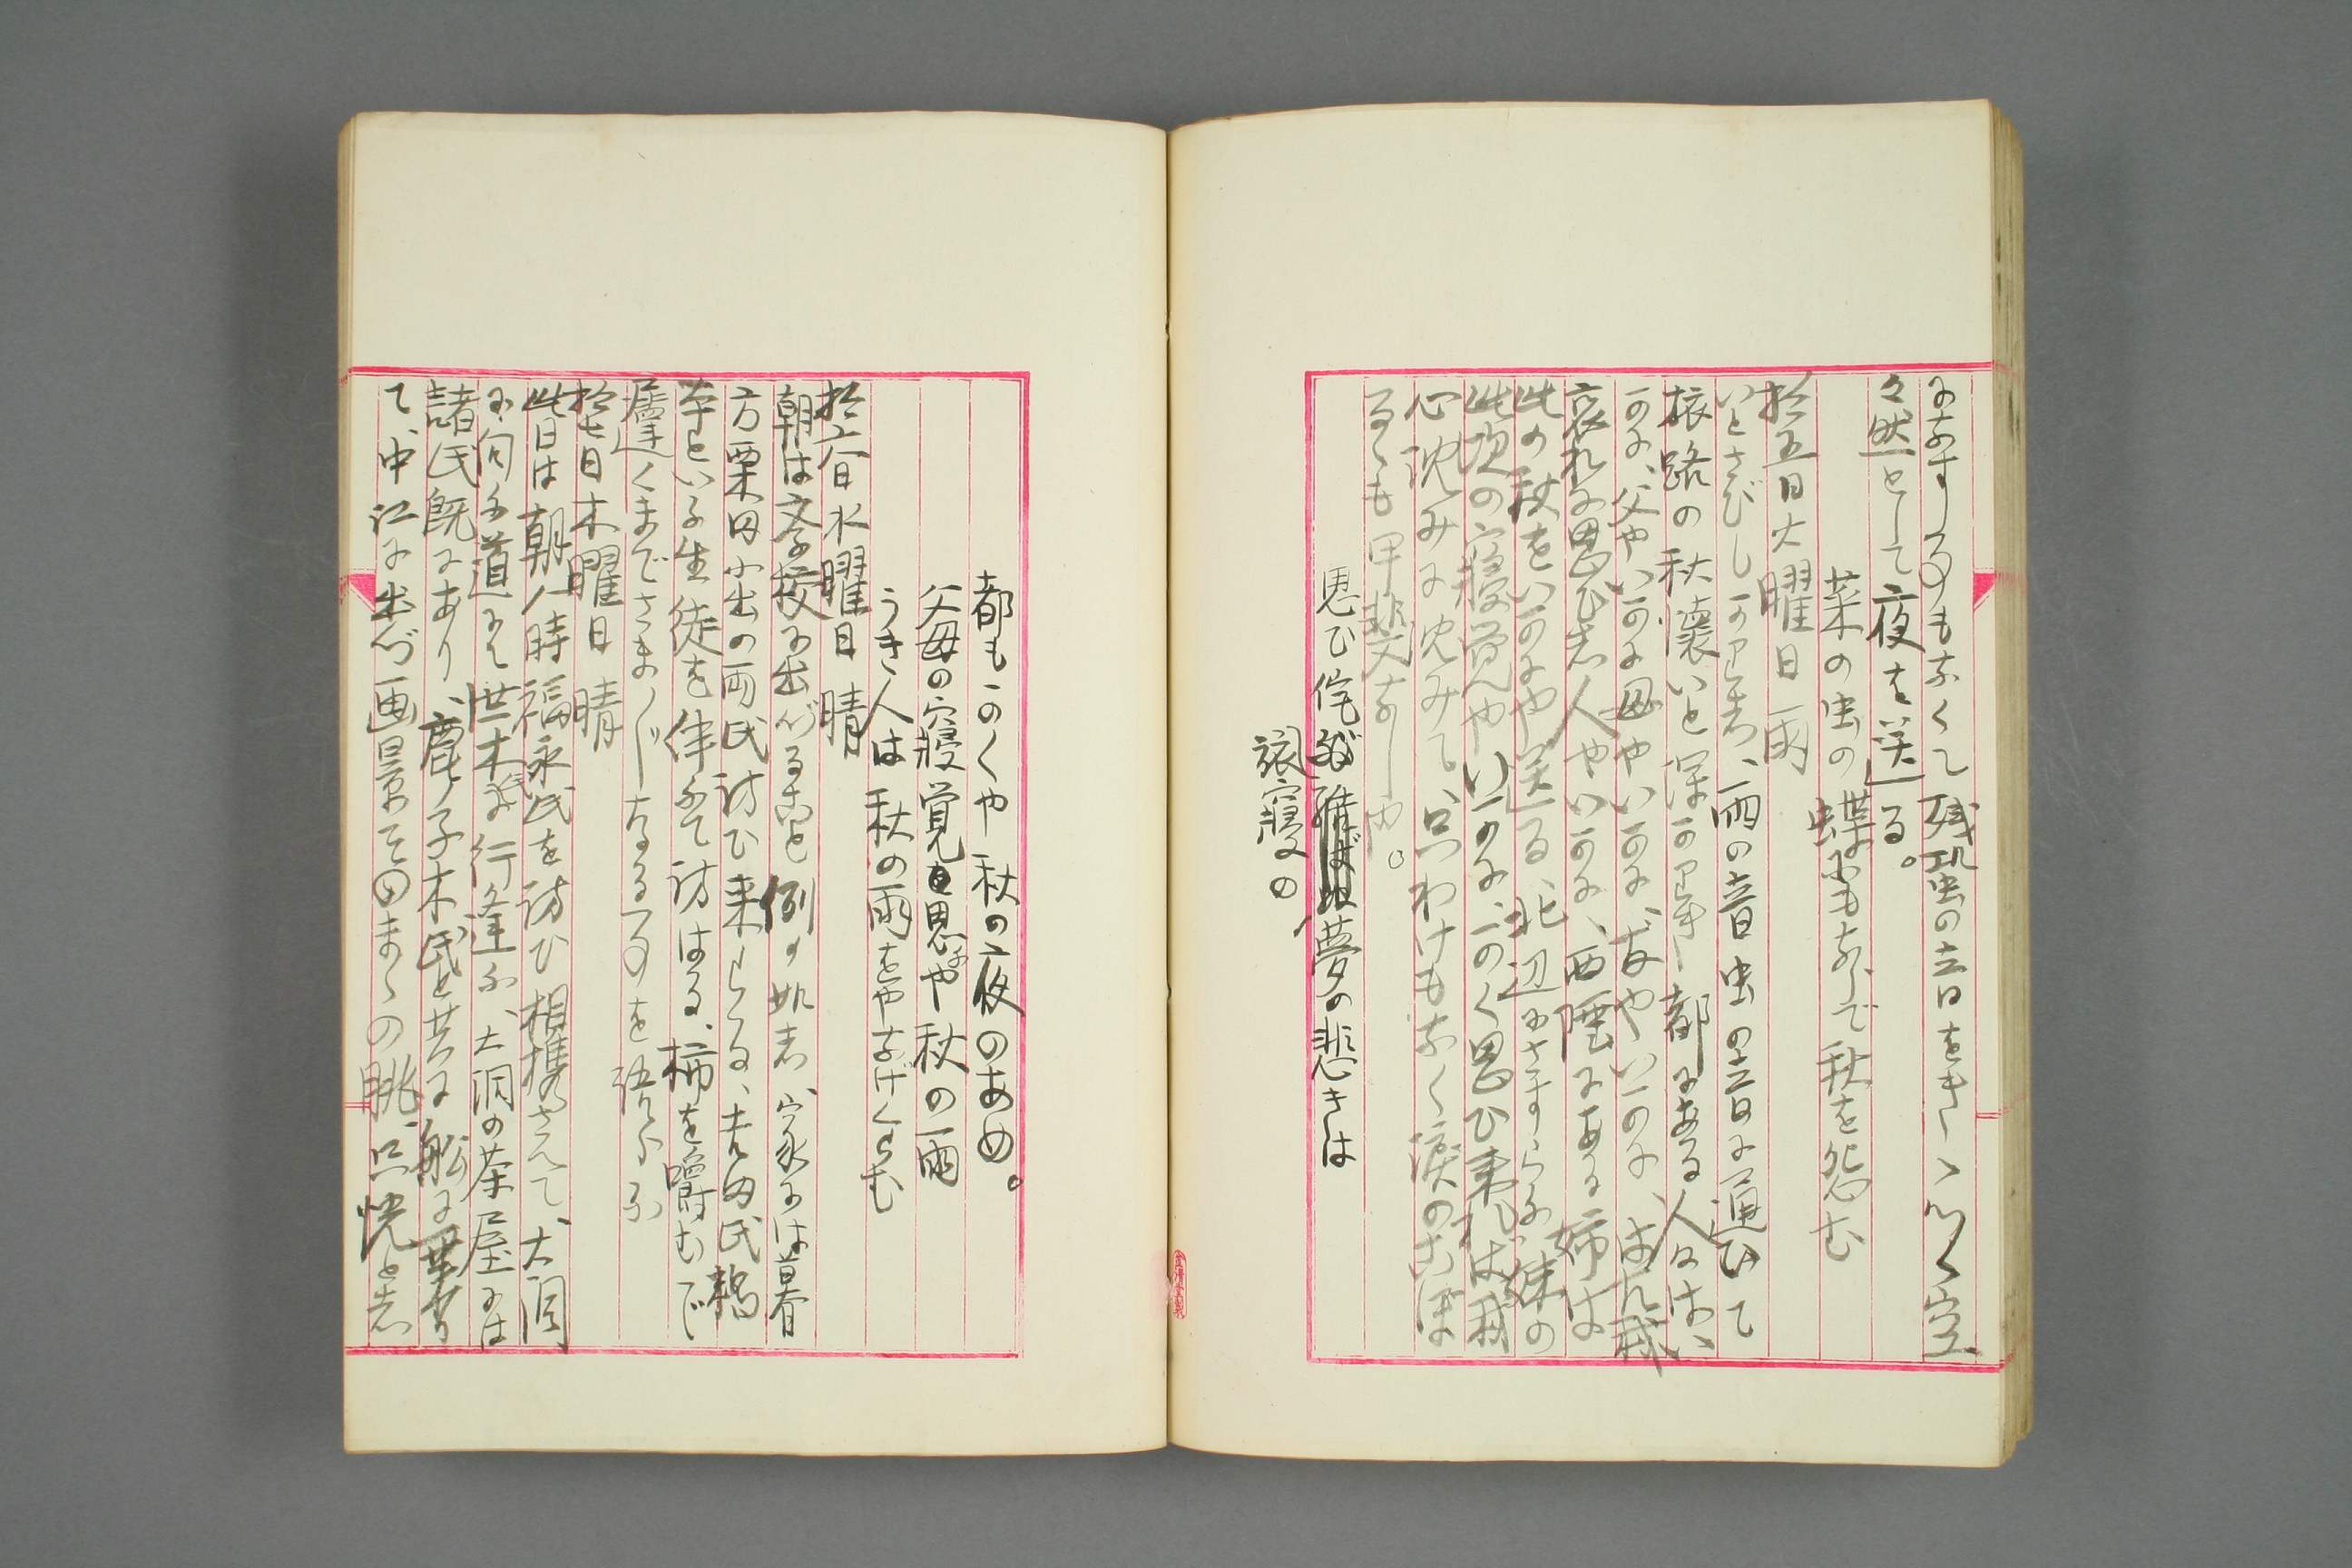 になす事もなくて残蛩の音をきゝつゝ空
々然として夜を送る。
菜の虫の蝶にもならで秋を怨む
拾五日火曜日 雨
いとさびしかりき、雨の音虫の音に通ひて
旅路の秋懐いと深かりき、都にある人はい
かに、父やいかに母やいかに、友やいかに、また我
哀れに思ひし人やいかに、西陲にある姉は
此の秋をいかにや送る、北辺にさすらふ妹の
此頃の寝覚めやいかに、かく思ひ来れば我
心沈みに沈みて、只わけもなく涙のこぼ
るゝも甲斐なしや。
思ひ侘 夢の悲きは
旅寝の
都もかくや秋の夜のあめ。
父母の寝覚を思ふや秋の雨
うき人は秋の雨をやなげくらむ
拾六日水曜日 晴
朝は学校に出づること例の如し、家には暮
方栗田小出の両氏訪ひ来らる、
といふ生徒を伴ふて訪はる、柿を嚼むで
遅くまでさま〲なる事を語らふ
拾七日木曜日 晴
此日は朝八時福永氏を訪ひ相携さへて、大洞
に向ふ道にて世木氏に行逢ふ、大洞の茶屋には
諸氏既にあり、鹿子木氏と共に船に乗り
て、中江に出づ画景そのまゝの眺、只恍とし